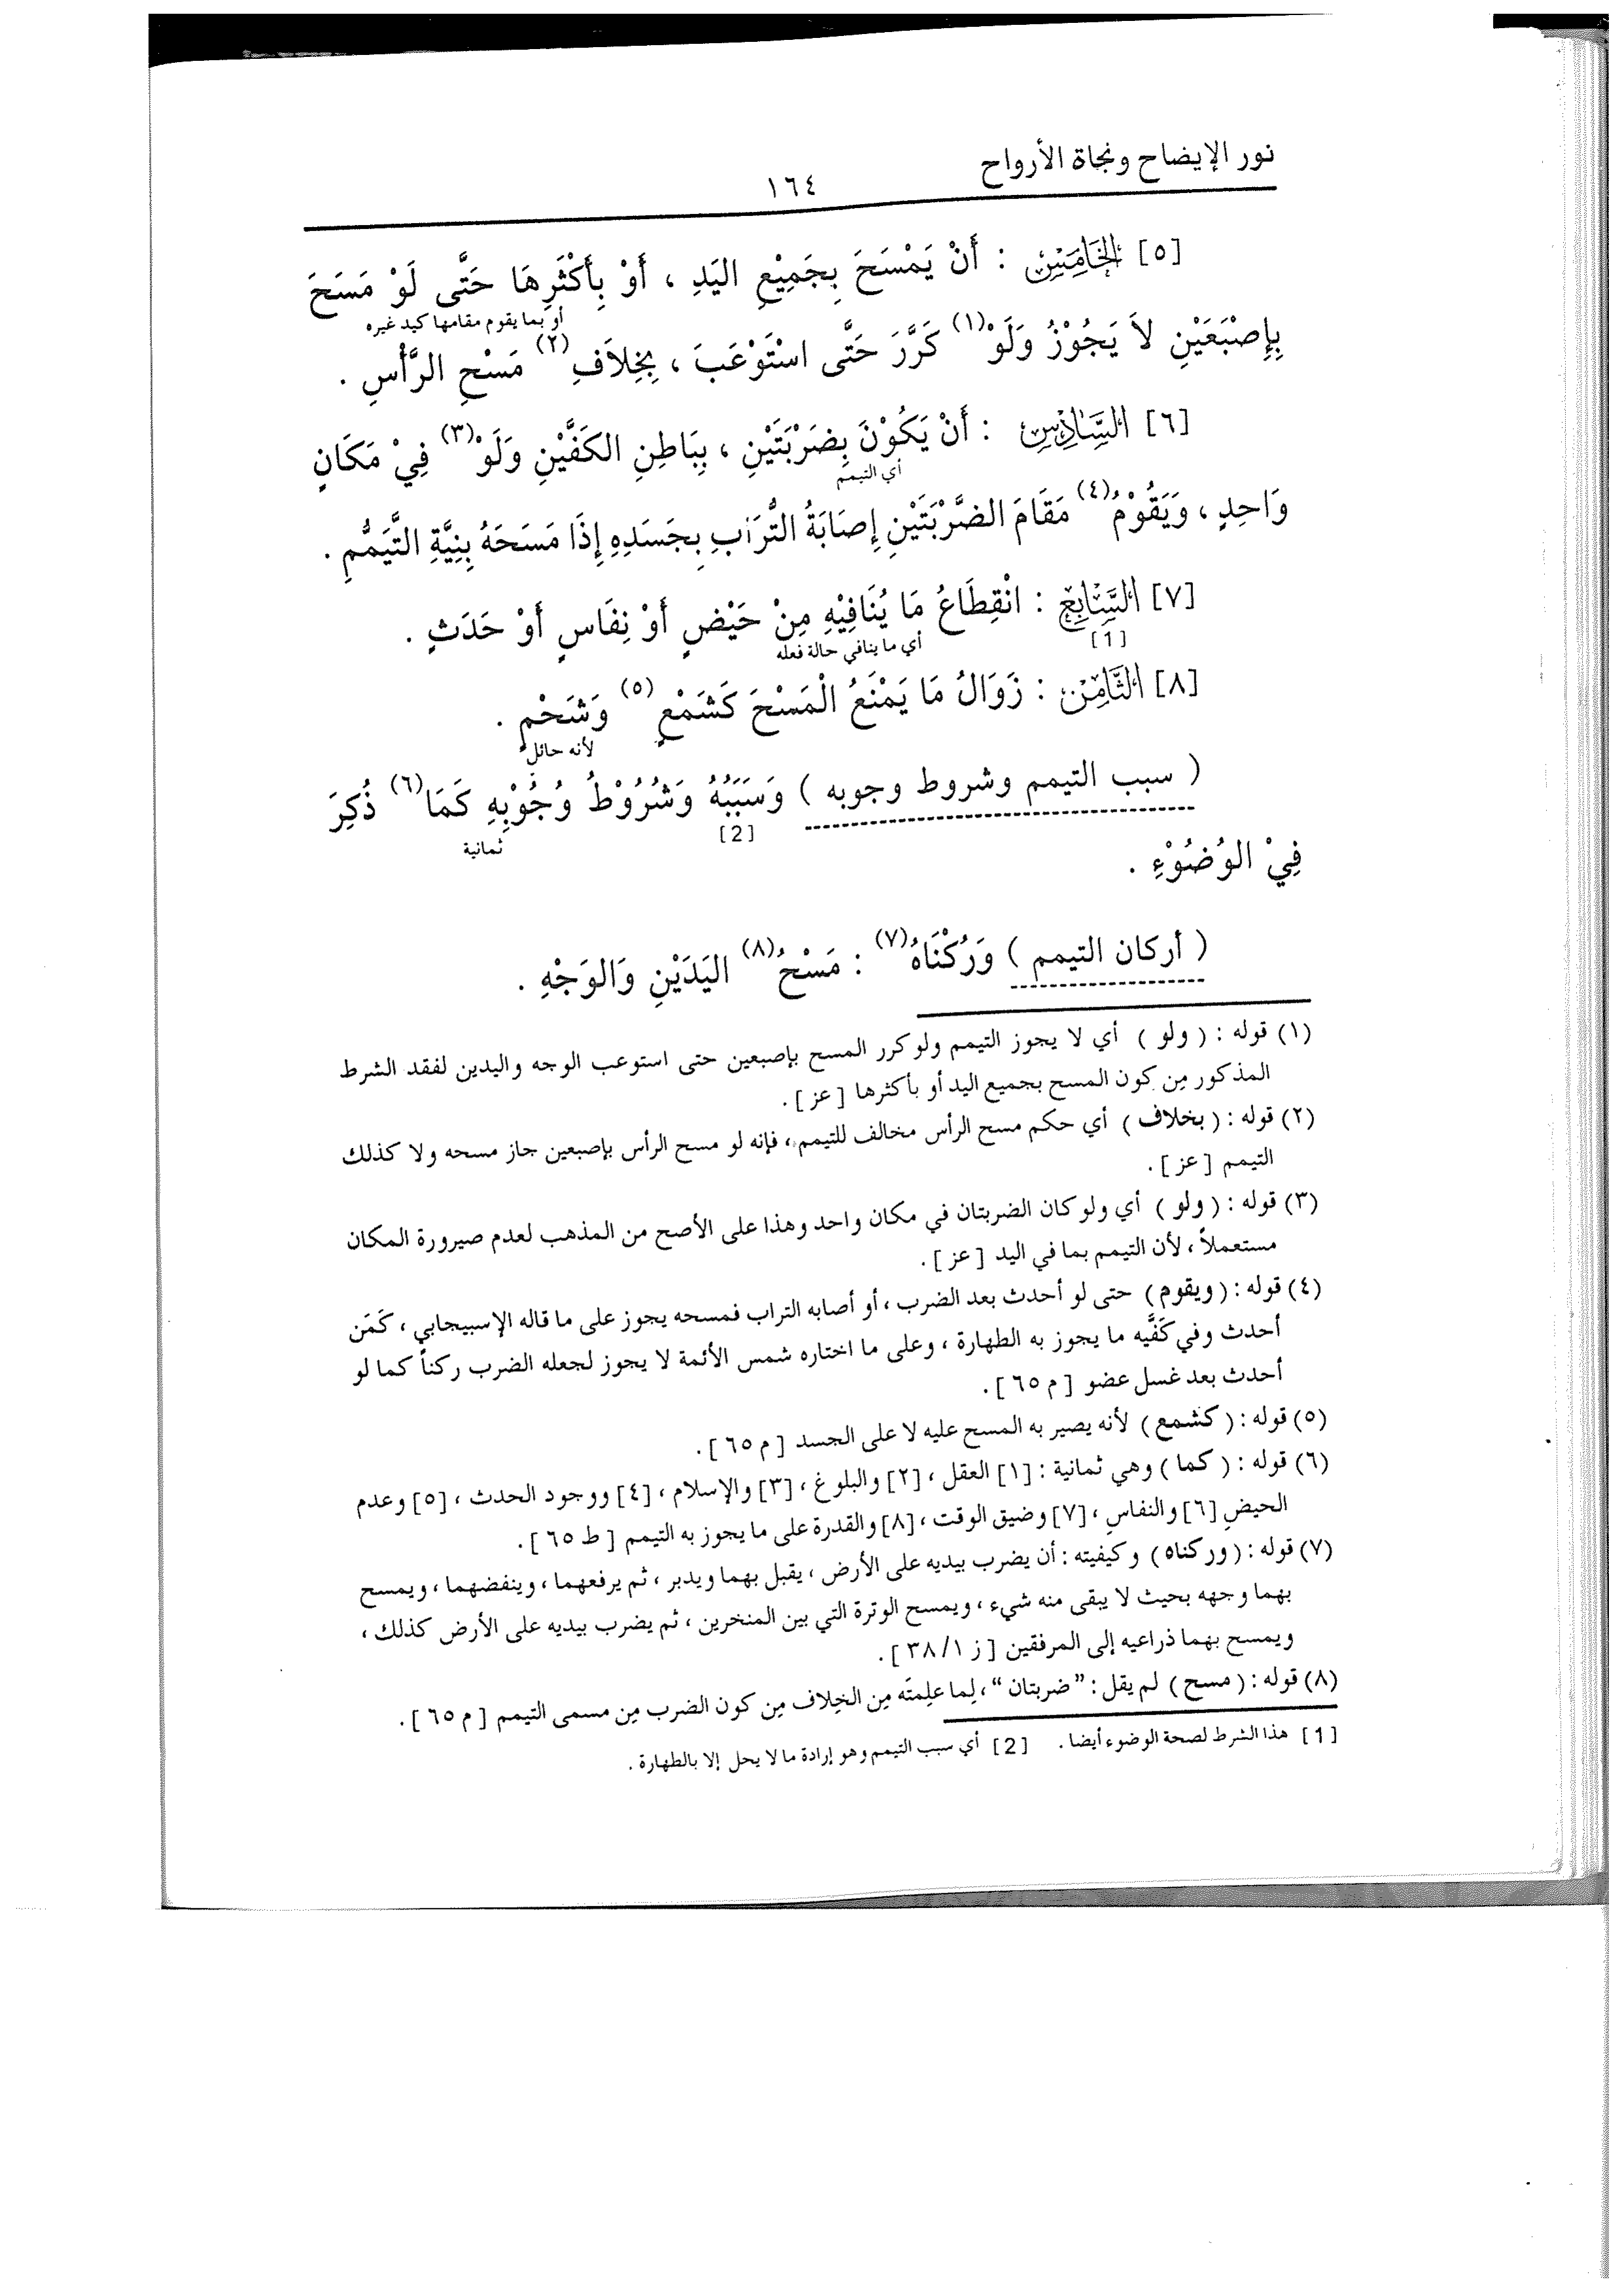 نور الإيضاح ونجاة الأرواح
١٦٤
[٥] الخَامِسُ : أَنْ يَمْسَحَ بِجَمِيْعِ اليَدِ ، أَوْ بِأَكْثَرِهَا حَتَّى لَوْ مَسَحَ
أو بما يقوم مقامها كيد غيره
بِإِصْبَعَيْنِ لاَ يَجُوْزُ وَلَوْ(١) كَرَّرَ حَتَّى اسْتَوْعَبَ ، بِخِلاَفِ(٢) مَسْحِ الرَّأْسِ .
[٦] السَّادِسُ : أَنْ يَكُوْنَ بِضَرْبَتَيْنِ ، بِبَاطِنِ الكَفَّيْنِ وَلَوْ(٣) فِيْ مَكَانٍ
أي التيمم
وَاحِدٍ ، وَيَقُوْمُ(٤) مَقَامَ الضَّرْبَتَيْنِ إِصَابَةُ التُّرَابِ بِجَسَدِهِ إِذَا مَسَحَهُ بِنِيَّةِ التَّيَمُّمِ .
[٧] السَّابِعُ : انْقِطَاعُ مَا يُنَافِيْهِ مِنْ حَيْضٍ أَوْ نِفَاسٍ أَوْ حَدَثٍ .
[1] أي ما ينافي حالة فعله
[٨] الثَّامِنُ : زَوَالُ مَا يَمْنَعُ الْمَسْحَ كَشَمْعٍ(٥) وَشَحْمٍ .
لأنه حائل
( سبب التيمم وشروط وجوبه ) وَسَبَبُهُ وَشُرُوْطُ وُجُوْبِهِ كَمَا(٦) ذُكِرَ
[2] ثمانية
فِيْ الوُضُوْءِ .
( أركان التيمم ) وَرُكْنَاهُ(٧) : مَسْحُ(٨) اليَدَيْنِ وَالوَجْهِ .
(١) قوله : ( ولو ) أي لا يجوز التيمم ولو كرر المسح بإصبعين حتى استوعب الوجه واليدين لفقد الشرط
المذكور مِن كون المسح بجميع اليد أو بأكثرها [ عز ] .
(٢) قوله : ( بخلاف ) أي حكم مسح الرأس مخالف للتيمم ، فإنه لو مسح الرأس بإصبعين جاز مسحه ولا كذلك
التيمم [ عز ] .
(٣) قوله : ( ولو ) أي ولو كان الضربتان في مكان واحد وهذا على الأصح من المذهب لعدم صيرورة المكان
مستعملاً ، لأن التيمم بما في اليد [ عز ] .
(٤) قوله : ( ويقوم ) حتى لو أحدث بعد الضرب ، أو أصابه التراب فمسحه يجوز على ما قاله الإسبيجابي ، كَمَن
أحدث وفي كَفَّيه ما يجوز به الطهارة ، وعلى ما اختاره شمس الأئمة لا يجوز لجعله الضرب ركناً كما لو
أحدث بعد غسل عضو [ م ٦٥ ] .
(٥) قوله : ( كشمع ) لأنه يصير به المسح عليه لا على الجسد [ م ٦٥ ] .
(٦) قوله : ( كما ) وهي ثمانية : [١] العقل ، [٢] والبلوغ ، [٣] والإسلام ، [٤] ووجود الحدث ، [٥] وعدم
الحيضِ [٦] والنفاسِ ، [٧] وضيق الوقت ، [٨] والقدرة على ما يجوز به التيمم [ ط ٦٥ ] .
(٧) قوله : ( وركناه ) وكيفيته : أن يضرب بيديه على الأرض ، يقبل بهما ويدبر ، ثم يرفعهما ، وينفضهما ، ويمسح
بهما وجهه بحيث لا يبقى منه شيء ، ويمسح الوترة التي بين المنخرين ، ثم يضرب بيديه على الأرض كذلك ،
ويمسح بهما ذراعيه إلى المرفقين [ ز ٣٨/١ ] .
(٨) قوله : ( مسح ) لم يقل : ”ضربتان“ ، لِما علِمتَه مِن الخِلاف مِن كون الضرب مِن مسمى التيمم [ م ٦٥ ] .
[1] هذا الشرط لصحة الوضوء أيضا . [2] أي سبب التيمم وهو إرادة ما لا يحل إلا بالطهارة .